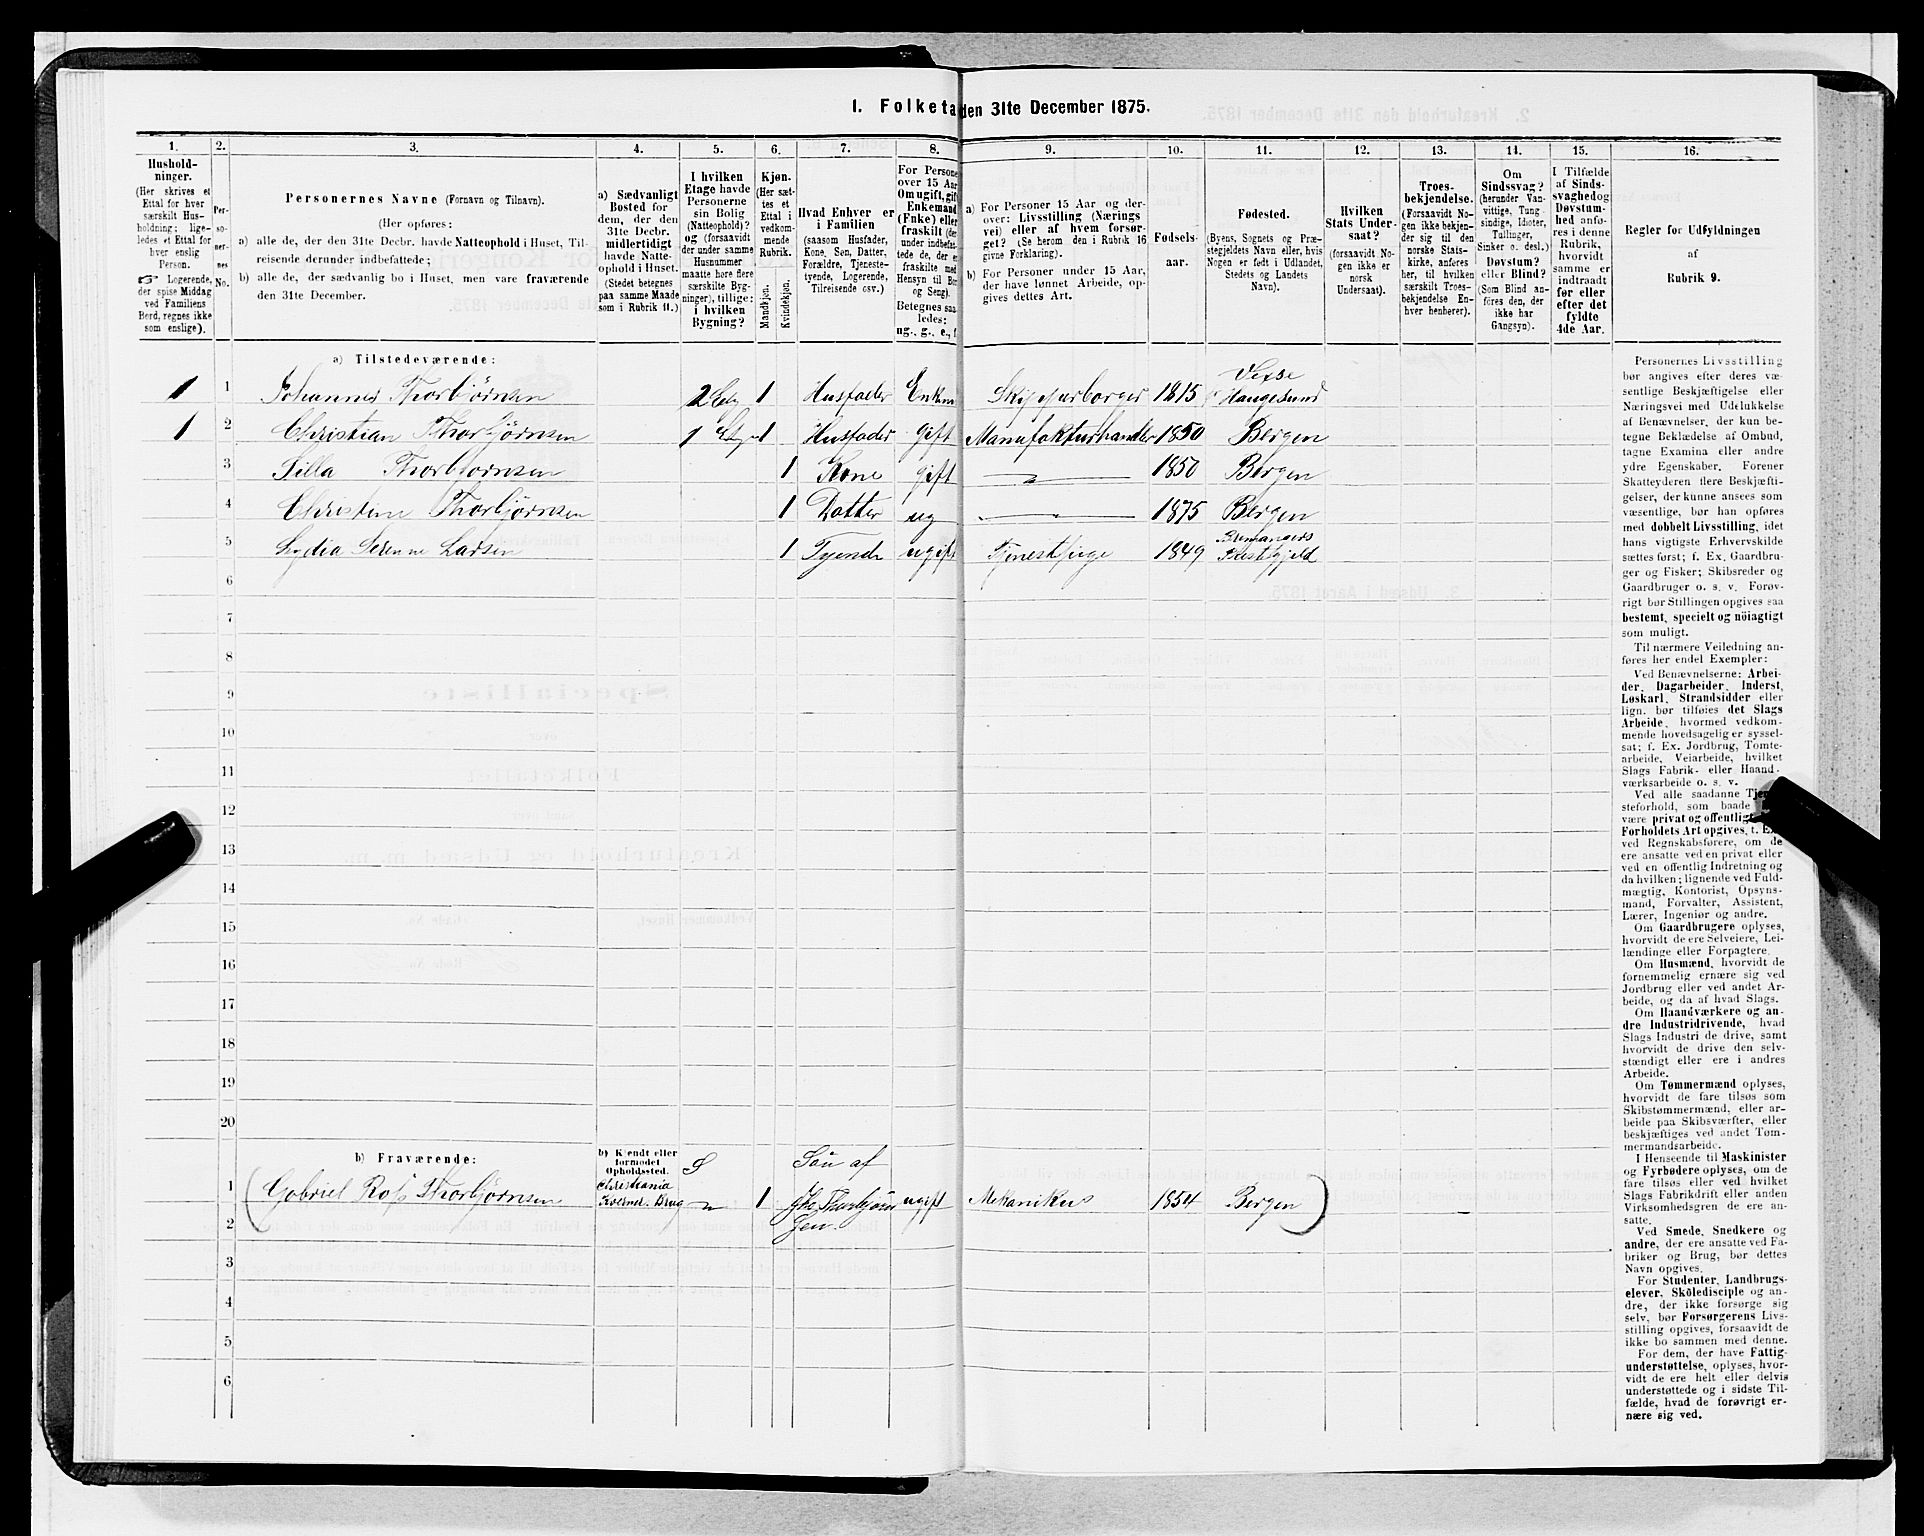 1. Folketa den 31te December 1875.
1. 2. 3. 4. 5. 6. 7. 8. 9. 10. 11. 12. 13. 14. 15. 16.
Hushold-
ninger.
(Her skrives et
Ettal for hver
særskilt Hus-
holdning; lige-
ledes et Ettal for
hver enslig
Person.
☞ Logerende,
der spise Middag
ved Familiens
Bord, regnes ikke
som enslige).
Per-
so-
ner-
nes
No.
Personernes Navne (Fornavn og Tilnavn).
(Her opføres:
a) alle de, der den 31te Decbr. havde Natteophold i Huset, Til-
reisende derunder indbefattede;
b) alle de, der sædvanlig bo i Huset, men vare fraværende
den 31te December.
a) Sædvanligt
Bosted for
dem, der den
31te Decbr.
midlertidigt
havde Natte-
ophold i Huset.
(Stedet betegnes
paa samme Maade
som i Rubrik 11.)
I hvilken
Etage havde
Personerne
sin Bolig
(Natteophold)?
og (forsaavidt
der under samme
Husnummer
maatte høre flere
særskilte Byg-
ninger), tillige:
i hvilken
Bygning?
Kjøn.
(Her sæt-
tes et
Ettal i
vedkom-
mende
Rubrik.
Mandkjøn.
Kvindekjøn.
Hvad Enhver er
i Familien
(saasom Husfader,
Kone, Søn, Datter,
Forældre, Tjeneste-
tyende, Logerende,
Tilreisende osv.)
For Persone
over 15 Aar
Om ugift, gif
Enkemand
(Fnke) elle
fraskilt (der
under indbefat-
tede de, der e
fraskilte med
Hensyn til Bor
og Seng).
Betegnes saa
ledes:
ug., g., e., f
a) For Personer 15 Aar og der-
over: Livsstilling (Nærings
vei) eller af hvem forsør-
get? (Se herom den i Rubrik 16
givne Forklaring).
b) For Personer under 15 Aar,
der have lønnet Arbeide, op-
gives dettes Art.
Fødsels-
aar.
Fødested.
(Byens, Sognets og Præ-
stegjeldets Navn eller, hvis
Nogen er født i Udlandet,
Stedets og Landets
Navn).
Hvilken
Stats Under-
saat?
(forsaavidt No-
gen ikke er
norsk
Undersaat).
Troes-
bekjendelse.
(Forsaavidt No-
gen ikke bekjen-
der sig til den
norske Stats-
kirke, anføres
her, til hvilken
særskilt Troes-
bekjendelse En-
hver henhører).
Om
Sindssvag?
(herunder Van-
vittige, Tung
sindige, Idioter,
Tullinger,
Sinker o. desl.)
Døvstum?
eller Blind?
(Som Blind an-
føres den, der
ikke har
Gangsyn).
I Tilfælde
af Sinds-
svaghed og
Døvstum-
hed anfø-
res i denne
Rubrik,
hvorvidt
samme er
indtraadt
før eller
efter det
fyldte
4de Aar.
Regler for Udfyldningen
af
Rubrik 9.
a) Tilstedeværende:
1 1 Johannes Thorbjørnsen 2 Etg 1 Husfader Enkem Skipperborger 1815 Haugesund
1 2 Christian Thorbjørnsen 1 Etg 1 Husfader Gift Manufakturhandler 1850 Bergen
3 Silla Thorbjørnsen 1 Kone gift 1850 Bergen
4 Christine Thorbjørnsen 1 Datter ug 1875 Bergen
5 Lydia Serenne Larsen 1 Tyende ugift Tjenestpige 1849 Kremangers Prestegjeld
6
7
8
9
10
11
12
13
14
15
16
17
18
19
20
b) Fraværende:
b) Kjendt eller
formodet
Opholdssted.
1 Gabriel Ross Thorbjørnsen Christiania Kværner Brug 1 Søn af Joh. Thorbjørn Sen. ugift Mekanikus 1854 Bergen
2
3
4
5
6
Personernes Livsstilling
bør angives efter deres væ-
sentlige Beskjæftigelse eller
Næringsvei med Udelukkelse
af Benævnelser, der kun be-
tegne Beklædelse af Ombud,
tagne Examina eller andre
ydre Egenskaber. Forener
Skatteyderen flere Beskjæfti-
gelser, der kunne ansees som
væsentlige, bør han opføres
med dobbelt Livsstilling, idet
hans vigtigste Erhvervskilde
sættes først; f. Ex. Gaardbru-
ger og Fisker; Skibsreder og
Gaardbruger o. s. v. Forøv-
rigt bør Stillingen opgives saa
bestemt, specielt og nöiagtigt
som muligt.
Til nærmere Veiledning an-
føres her endel Exempler:
Ved Benævnelserne: Arbei-
der, Dagarbeider, Inderst,
Løskarl, Strandsidder eller
lign. bør tilføies det Slags
Arbeide, hvormed vedkom-
mende hovedsagelig er syssel-
sat; f. Ex. Jordbrug, Tomte-
arbeide, Veiarbeide, hvilket
Slags Fabrik- eller Haand-
værksarbeide o. s. v.
Ved alle saadanne Tje
steforhold, som baade
være privat og offentligt,
Forholdets Art opgives, t. Ex
ved Regnskabsførere, om de
ere ansatte ved en privat eller
ved en offentlig Indretning og
da hvilken; lignende ved Fuld-
mægtig, Kontorist, Opsyns-
mand, Forvalter, Assistent,
Lærer, Ingeniør og andre.
Om Gaardbrugere oplyses,
hvorvidt de ere Selveiere, Lei-
lændinge eller Forpagtere.
Om Husmænd, hvorvidt de
fornemmelig ernære sig ved
Jordbrug eller ved andet Ar-
beide, og da af hvad Slags.
Om Haandværkere og an-
dre Industridrivende, hvad
Slags Industri de drive, samt
hvorvidt de drive den selv-
stændigt eller ere i andres
Arbeide.
Om Tømmermænd oplyses,
hvorvidt de fare tilsøs som
Skibstømmermænd, eller ar-
beide paa Skibsværfter, eller
beskjæftiges ved andet Tøm-
mermandsarbeide.
I Henseende til Maskinister
og Fyrbødere oplyses, om de
fare tilsøs eller ved hvilket
Slags Fabrikdrift eller anden
Virksomhedsgren de ere an-
satte.
Ved Smede, Snedkere og
andre, der ere ansatte ved Fa-
briker og Brug, bør dettes
Navn opgives.
For Studenter, Landbrugs-
elever, Skoledisciple og an-
dre, der ikke forsørge sig
selv, bør Forsørgerens Livs-
stilling opgives, forsaavidt de
ikke bo sammen med denne.
For dem, der have Fattig-
understøttelse, oplyses, hvor-
vidt de ere helt eller delvis
understøttede og i sidste Til-
fælde, hvad de forøvrigt er-
nære sig ved.